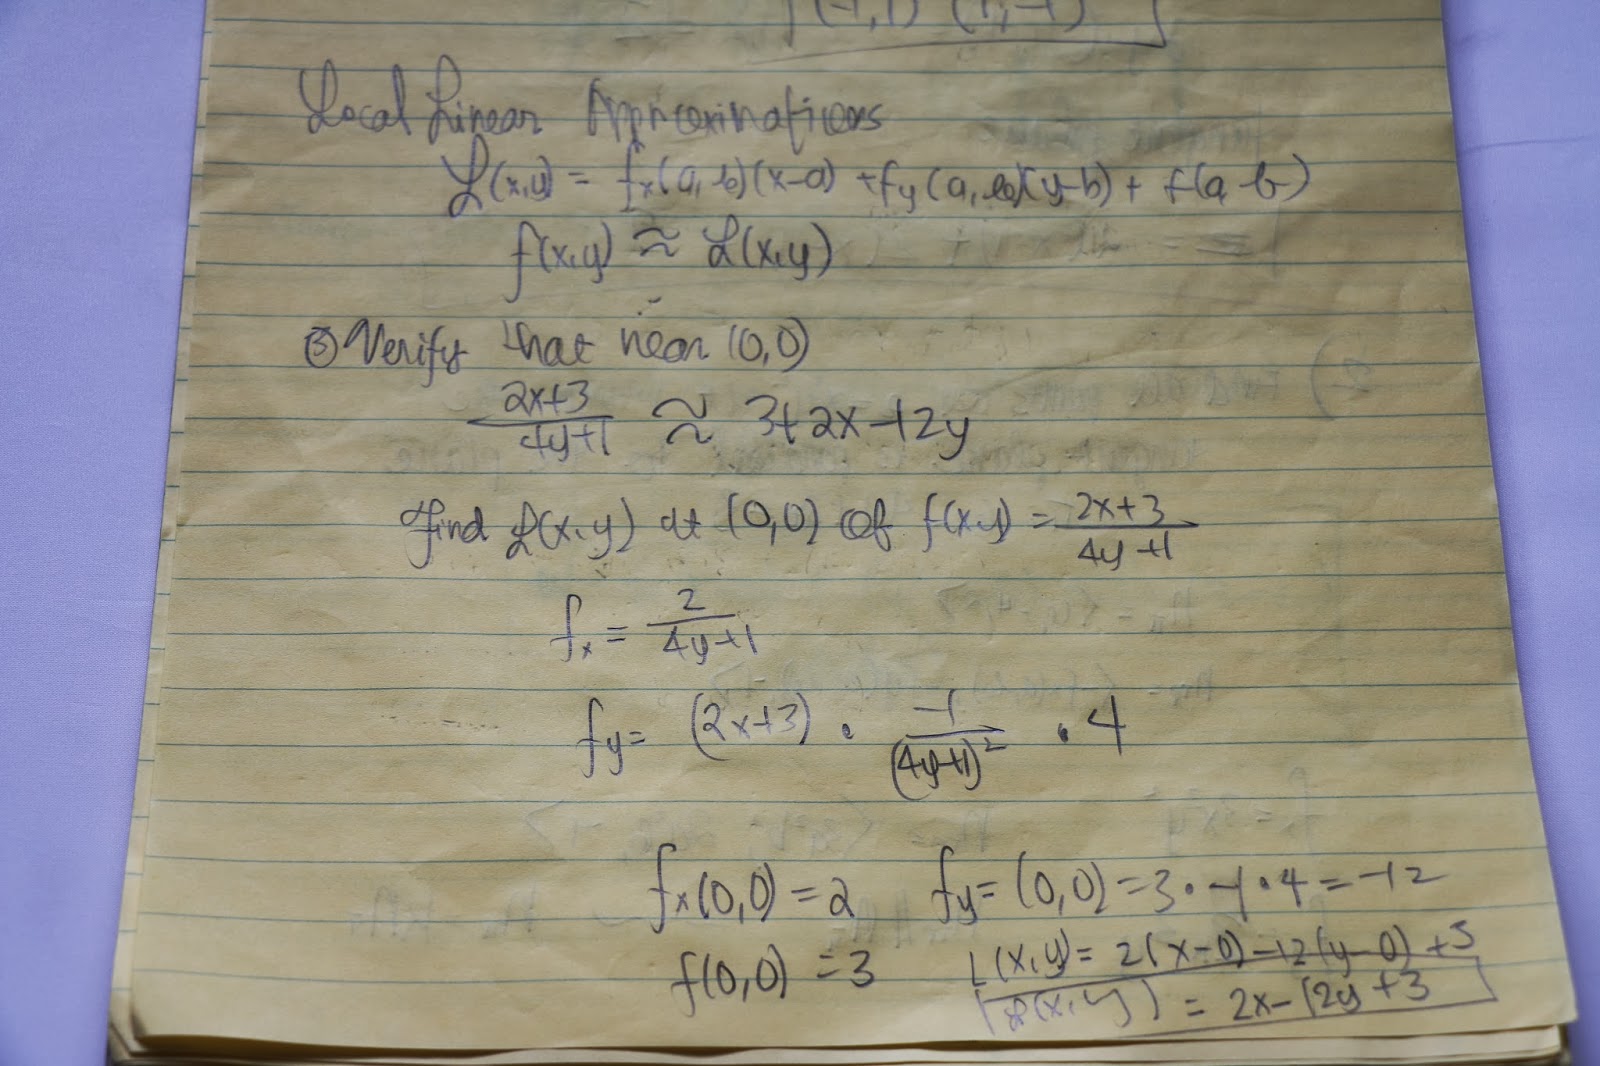 (-1,1) (1,-1)
Local Linear Approximations
L(x,y) = fx(a,b)(x-a) + fy(a,b)(y-b) + f(a-b)
f(x,y) ≈ L(x,y)
③ Verify that near (0,0)
2x+3 / 4y+1 ≈ 3+2x-12y
find L(x,y) at (0,0) of f(x,y) = 2x+3 / 4y+1
fx = 2 / 4y+1
fy = (2x+3) · -1 / (4y+1)² · 4
fx(0,0) = 2 fy = (0,0) = 3·-1·4 = -12
f(0,0) = 3 L(x,y) = 2(x-0) -12(y-0) +3
L(x,y) = 2x-12y+3